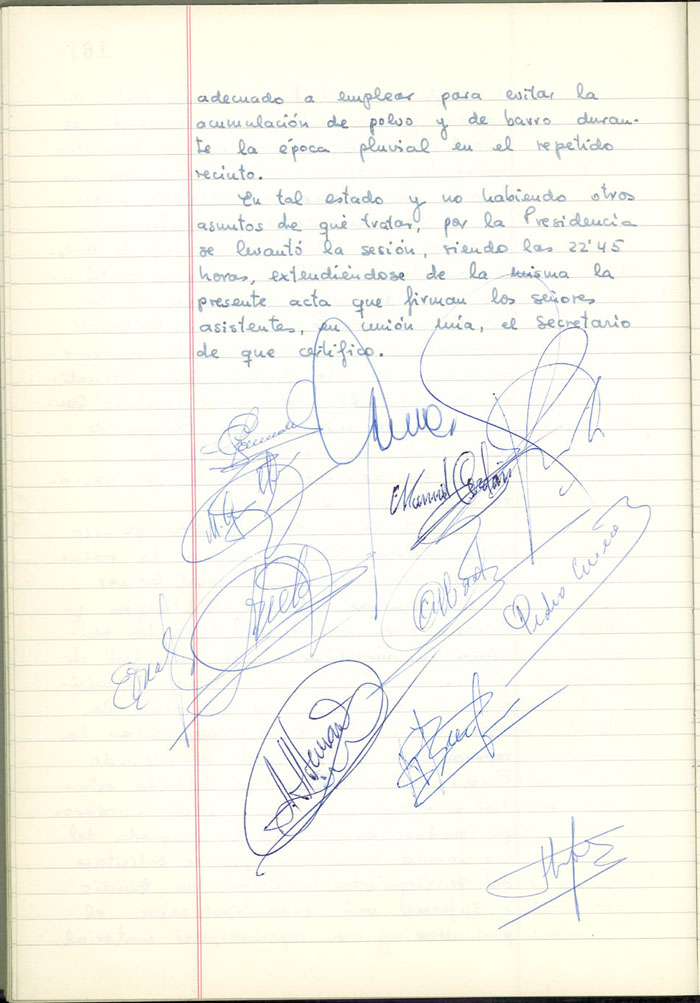 adecuado a emplear para evitar la
acumulación de polvo y de barro duran-
te la época pluvial en el repetido
recinto.
En tal estado y no habiendo otros
asuntos de qué tratar, por la Presidencia
se levantó la sesión, siendo las 22'45
horas, extendiéndose de la misma la
presente acta que firman los señores
asistentes, en unión mía, el Secretario
de que certifico.
Manuel
Pedro